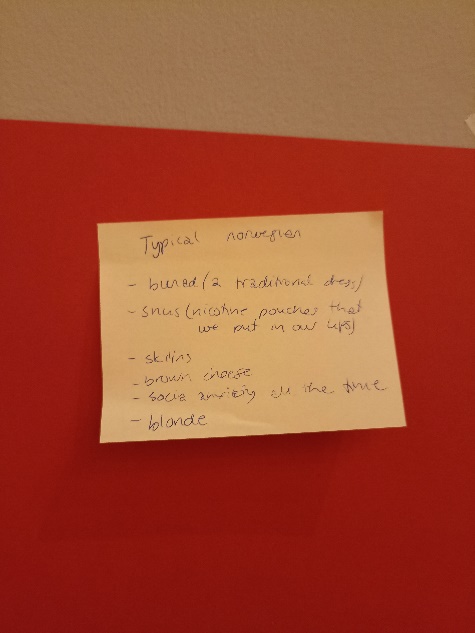 Typical norwegian
- bunad (a traditional dress)
- snus (nicotine pouches that
we put in our lips)
- skiing
- brown cheese
- social anxiety all the time
- blonde